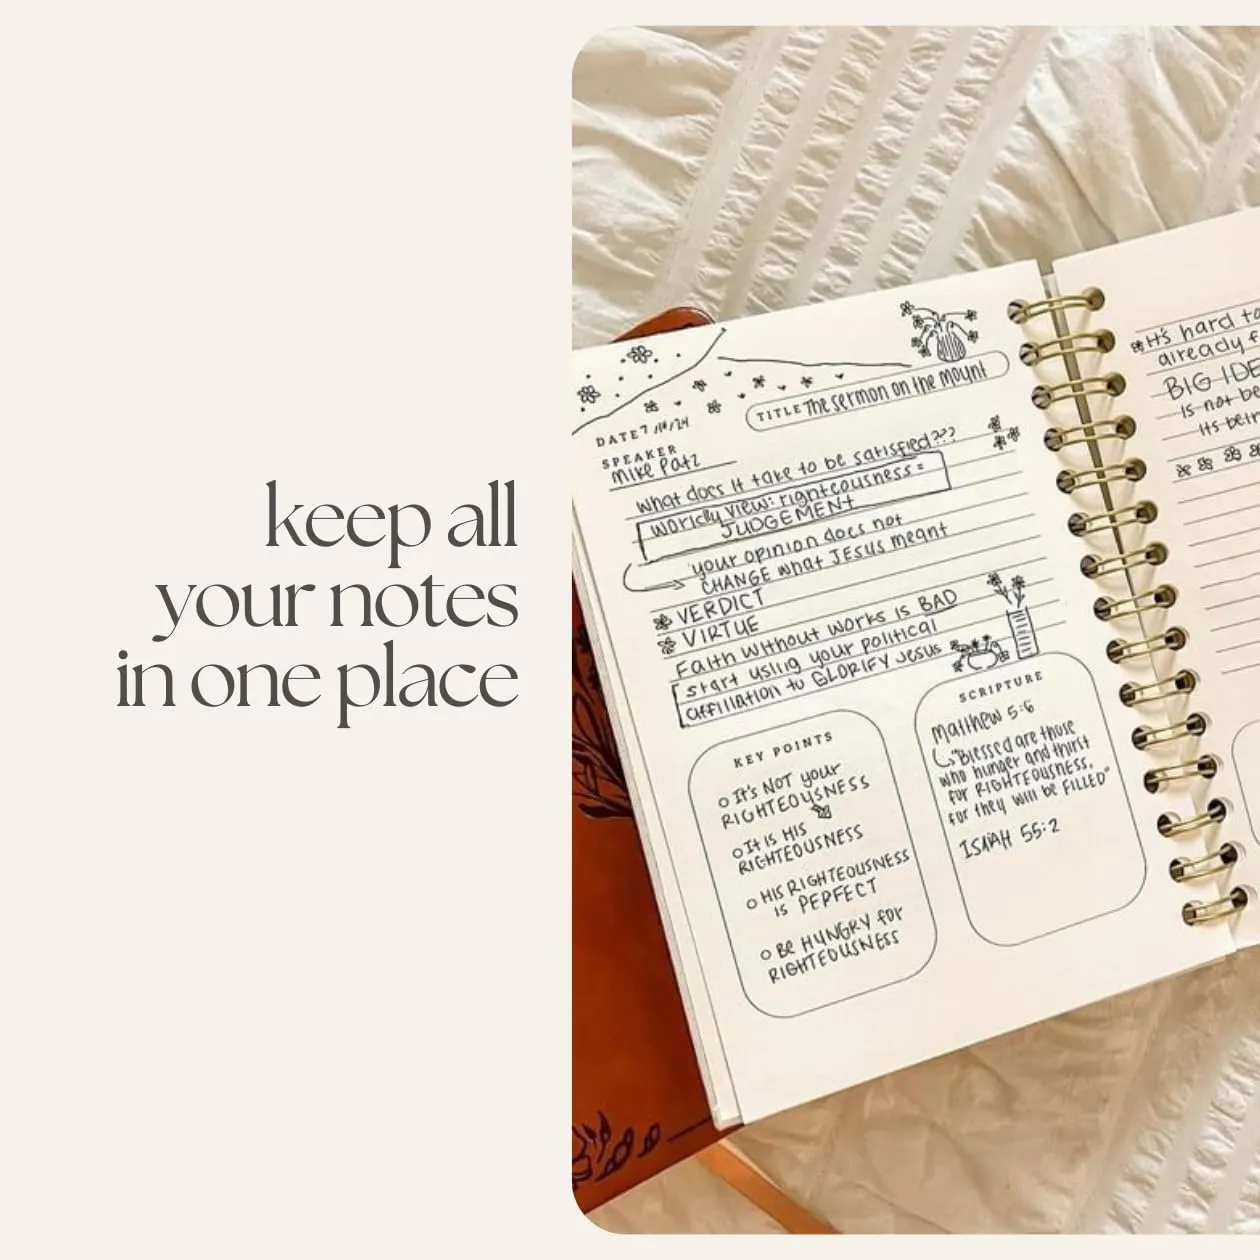 keep all
your notes
in one place
TITLE The sermon on the Mount
DATE 7
SPEAKER
Mike Patz
what does it take to be satisfied???
worldly view: righteousness =
JUDGEMENt
your opinion does not
CHANGE what JESUS meant
VERDICT
VIRTUE
Faith without works is BAD
start using your political
affiliation to GLORIFY Jesus
KEY POINTS
It's NOT your
RIGHTEOUSNESS
It is HIS
RIGHTEOUSNESS
HIS RIGHTEOUSNESS
is PERFECT
Be HUNGRY for
RIGHTEOUSNESS
SCRIPTURE
Matthew 5:6
"Blessed are those
who hunger and thirst
for RIGHTEOUSNESS,
for they will be FILLED"
ISAIAH 55:2
It's hard to
already f
BIG IDE
is not be
its bein